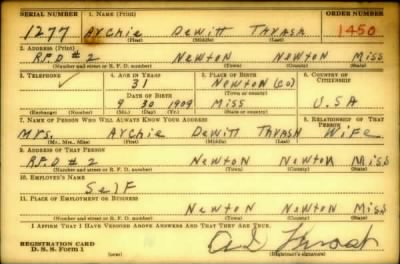 SERIAL NUMBER 1. NAME (Print) ORDER NUMBER
1277 Archie DeWitt Thrash 1450
(First) (Middle) (Last)
2. ADDRESS (Print)
R.F.D # 2 Newton Newton Miss
(Number and street or R. F. D. number) (Town) (County) (State)
3. TELEPHONE 4. AGE IN YEARS 5. PLACE OF BIRTH 6. COUNTRY OF CITIZENSHIP
31 Newton (Co)
DATE OF BIRTH (Town or county)
9 30 1909 Miss U.S.A
(Exchange) (Number) (Mo.) (Day) (Yr.) (State or country)
7. NAME OF PERSON WHO WILL ALWAYS KNOW YOUR ADDRESS 8. RELATIONSHIP OF THAT PERSON
Mrs. Archie DeWitt Thrash Wife
(Mr., Mrs., Miss) (First) (Middle) (Last)
9. ADDRESS OF THAT PERSON
R.F.D # 2 Newton Newton Miss
(Number and street or R. F. D. number) (Town) (County) (State)
10. EMPLOYER'S NAME
Self
11. PLACE OF EMPLOYMENT OR BUSINESS
Newton Newton Miss
(Number and street or R. F. D. number) (Town) (County) (State)
I AFFIRM THAT I HAVE VERIFIED ABOVE ANSWERS AND THAT THEY ARE TRUE.
REGISTRATION CARD
D. S. S. Form 1 A D Thrash
(Registrant's signature)